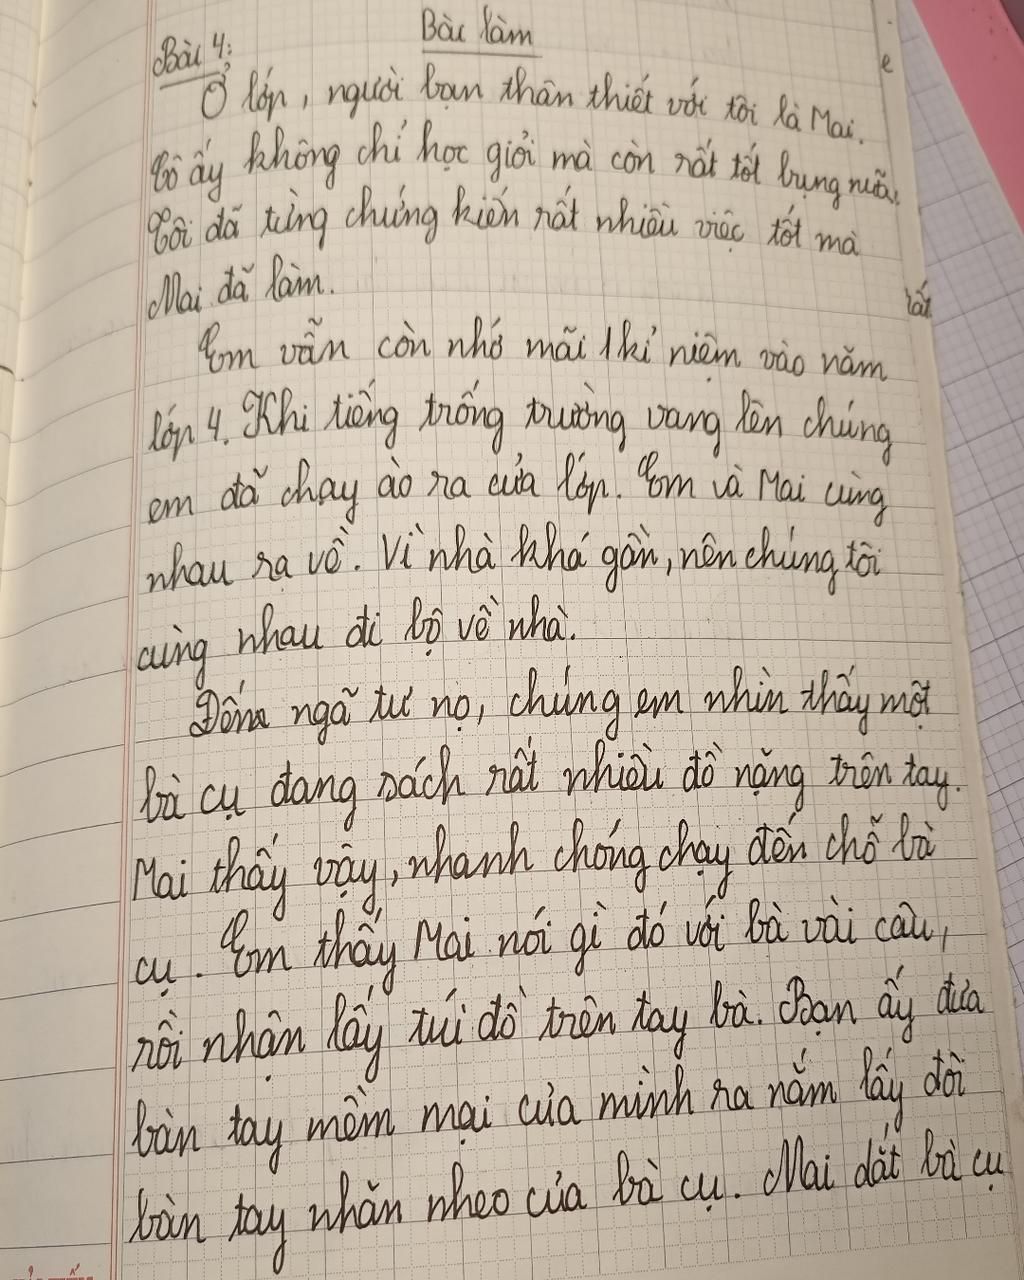 Bài làm
Bài 4:
Ở lớp, người bạn thân thiết với tôi là Mai.
Cô ấy không chỉ học giỏi mà còn rất tốt bụng nữa.
Tôi đã từng chứng kiến rất nhiều việc tốt mà
Mai đã làm.
Em vẫn còn nhớ mãi 1 kỉ niệm vào năm
lớp 4. Khi tiếng trống trường vang lên chúng
em đã chạy ào ra cửa lớp. Em và Mai cùng
nhau ra về. Vì nhà khá gần, nên chúng tôi
cùng nhau đi bộ về nhà.
Đến ngã tư nọ, chúng em nhìn thấy một
bà cụ đang xách rất nhiều đồ nặng trên tay.
Mai thấy vậy, nhanh chóng chạy đến chỗ bà
cụ. Em thấy Mai nói gì đó với bà vài câu,
rồi nhận lấy túi đồ trên tay bà. Bạn ấy đưa
bàn tay mềm mại của mình ra nắm lấy đôi
bàn tay nhăn nheo của bà cụ. Mai dắt bà cụ
e
rất